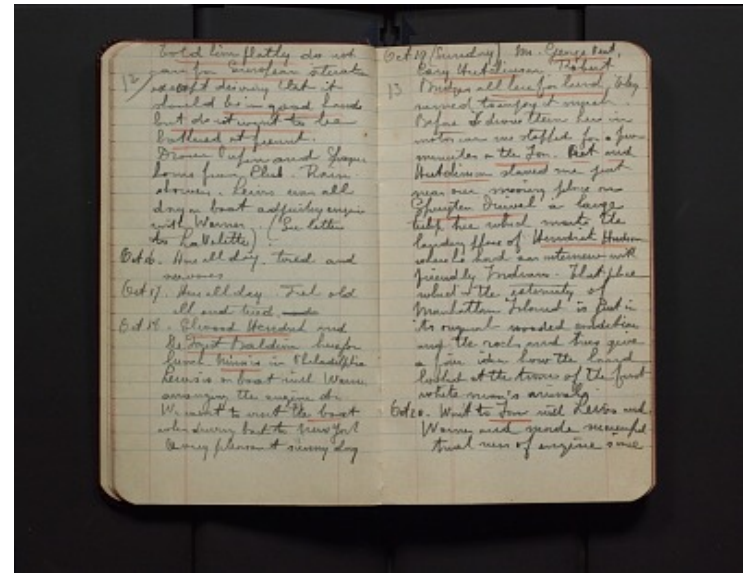 told him flatly do not
care for European situation
except delivery that it
should be in good hands
12 but do not want to be
bothered at present.
Drove Upjen and
home from Club. Rain
showers. Lewis was all
day on boat adjusting engine
with Warner. (See letter
to LaValette)
Oct 16. Home all day. tired and
nervous
Oct 17. Home all day. Feel old
ill and tired
Oct 18. Ellwood Hendrick and
De Forest Baldwin here for
lunch. Nina is in Philadelphia
Lewis is on boat with Warner
arranging the engine etc.
We went to visit the boat
when driving back to New York
Very pleasant sunny day
Oct 19 (Sunday) Mr. George
Cary Hutchinson, Robert
13 Bridges all here for lunch. They
seemed to enjoy it much.
Before I drove them here in
motorcar we stopped for a few
minutes on the Ion. and
Hutchinson showed me just
near our mooring place on
Spuyten Duivel a large
tulip tree which marks the
landing place of Hendrick Hudson
where he had an interview with
friendly Indians. That place
which is the extremity of
Manhattan Island is just in
its original wooded condition
and the rocks and trees give
a fair idea how the land
looked at the times of the first
white men's arrivals
Oct 20. Went to Ion with Lewis and
Warner and made successful
trial run of engine since